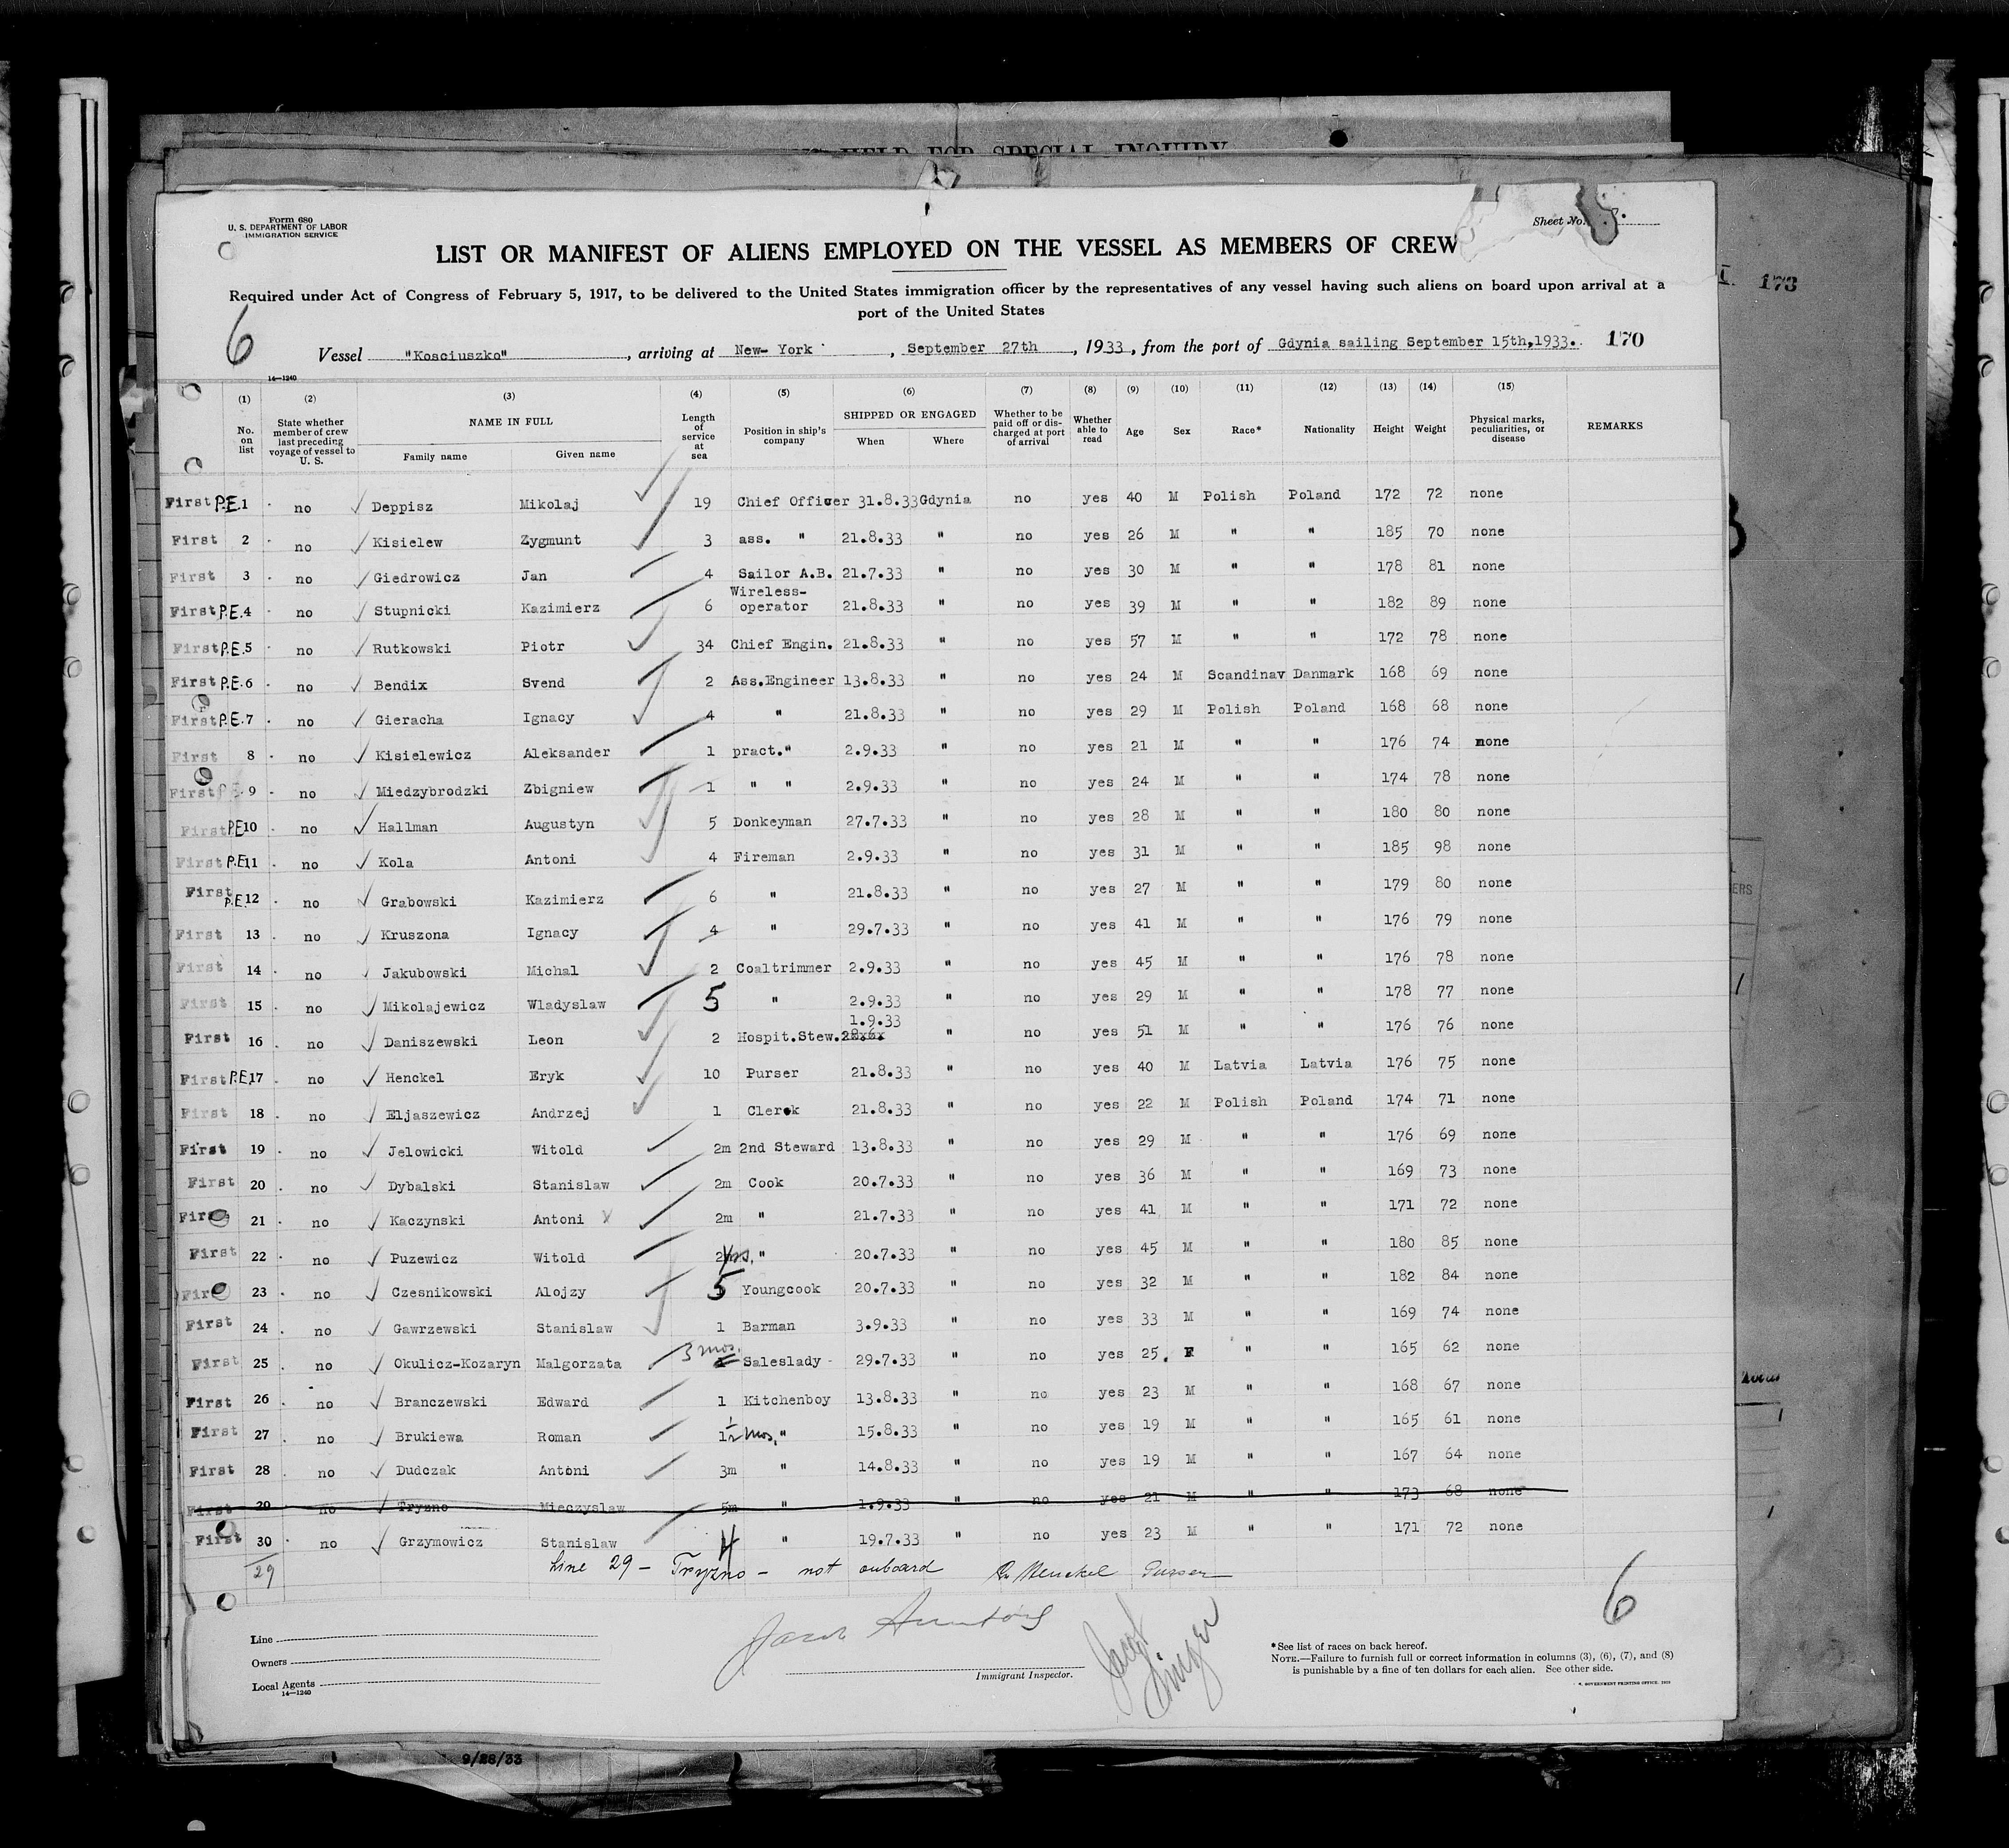 HELD FOR SPECIAL INQUIRY
Form 680
U. S. DEPARTMENT OF LABOR
IMMIGRATION SERVICE
Sheet No.
LIST OR MANIFEST OF ALIENS EMPLOYED ON THE VESSEL AS MEMBERS OF CREW
173
Required under Act of Congress of February 5, 1917, to be delivered to the United States immigration officer by the representatives of any vessel having such aliens on board upon arrival at a
port of the United States
6
Vessel "Kosciuszko", arriving at New-York, September 27th, 1933, from the port of Gdynia sailing September 15th,1933. 170
14—1240
(1) (2) (3) (4) (5) (6) (7) (8) (9) (10) (11) (12) (13) (14) (15)
No. on list State whether member of crew last preceding voyage of vessel to U. S. NAME IN FULL Family name Given name Length of service at sea Position in ship's company SHIPPED OR ENGAGED When Where Whether to be paid off or discharged at port of arrival Whether able to read Age Sex Race* Nationality Height Weight Physical marks, peculiarities, or disease REMARKS
First P.E. 1 no Deppisz Mikolaj 19 Chief Officer 31.8.33 Gdynia no yes 40 M Polish Poland 172 72 none
First 2 no Kisielew Zygmunt 3 ass. " 21.8.33 " no yes 26 M " " 185 70 none
First 3 no Giedrowicz Jan 4 Sailor A.B. 21.7.33 " no yes 30 M " " 178 81 none
First P.E. 4 no Stupnicki Kazimierz 6 Wireless-operator 21.8.33 " no yes 39 M " " 182 89 none
First P.E. 5 no Rutkowski Piotr 34 Chief Engin. 21.8.33 " no yes 57 M " " 172 78 none
First P.E. 6 no Bendix Svend 2 Ass.Engineer 13.8.33 " no yes 24 M Scandinav Danmark 168 69 none
First P.E. 7 no Gieracha Ignacy 4 " 21.8.33 " no yes 29 M Polish Poland 168 68 none
First 8 no Kisielewicz Aleksander 1 pract." 2.9.33 " no yes 21 M " " 176 74 none
First P.E. 9 no Miedzybrodzki Zbigniew 1 " " 2.9.33 " no yes 24 M " " 174 78 none
First P.E. 10 no Hallman Augustyn 5 Donkeyman 27.7.33 " no yes 28 M " " 180 80 none
First P.E. 11 no Kola Antoni 4 Fireman 2.9.33 " no yes 31 M " " 185 98 none
First P.E. 12 no Grabowski Kazimierz 6 " 21.8.33 " no yes 27 M " " 179 80 none
First 13 no Kruszona Ignacy 4 " 29.7.33 " no yes 41 M " " 176 79 none
First 14 no Jakubowski Michal 2 Coaltrimmer 2.9.33 " no yes 45 M " " 176 78 none
First 15 no Mikolajewicz Wladyslaw 5 " 2.9.33 " no yes 29 M " " 178 77 none
First 16 no Daniszewski Leon 2 Hospit.Stew. 1.9.33 " no yes 51 M " " 176 76 none
First P.E. 17 no Henckel Eryk 10 Purser 21.8.33 " no yes 40 M Latvia Latvia 176 75 none
First 18 no Eljaszewicz Andrzej 1 Clerck 21.8.33 " no yes 22 M Polish Poland 174 71 none
First 19 no Jelowicki Witold 2m 2nd Steward 13.8.33 " no yes 29 M " " 176 69 none
First 20 no Dybalski Stanislaw 2m Cook 20.7.33 " no yes 36 M " " 169 73 none
First 21 no Kaczynski Antoni 2m " 21.7.33 " no yes 41 M " " 171 72 none
First 22 no Puzewicz Witold " 20.7.33 " no yes 45 M " " 180 85 none
First 23 no Czesnikowski Alojzy 5 Youngcook 20.7.33 " no yes 32 M " " 182 84 none
First 24 no Gawrzewski Stanislaw 1 Barman 3.9.33 " no yes 33 M " " 169 74 none
First 25 no Okulicz-Kozaryn Malgorzata 3 mos. Saleslady 29.7.33 " no yes 25 F " " 165 62 none
First 26 no Branczewski Edward 1 Kitchenboy 13.8.33 " no yes 23 M " " 168 67 none
First 27 no Brukiewa Roman 1½ mos. " 15.8.33 " no yes 19 M " " 165 61 none
First 28 no Dudczak Antoni 3m " 14.8.33 " no yes 19 M " " 167 64 none
First 29 no Tryzno Mieczyslaw 5m " 1.9.33 " no yes 21 M " " 173 68 none
First 30 no Grzymowicz Stanislaw 4 " 19.7.33 " no yes 23 M " " 171 72 none
29 Line 29 — Tryzno — not onboard Henckel Purser
6
Line
Owners
Local Agents
14—1240
Immigrant Inspector.
Jacob Singer
*See list of races on back hereof.
NOTE.—Failure to furnish full or correct information in columns (3), (6), (7), and (8)
is punishable by a fine of ten dollars for each alien. See other side.
GOVERNMENT PRINTING OFFICE
9/28/33